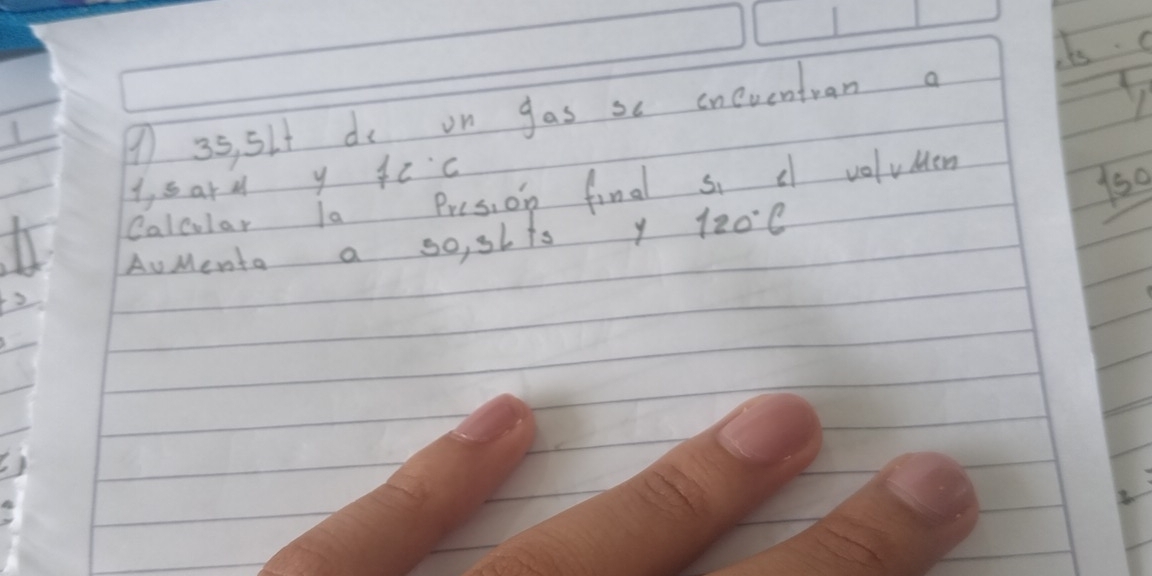 1) 35,5Lt de un gas se encuentran a
1,5atm y °C
Calcular la Presión final si el volumen
Aumenta a 50,5Lts y 120°C
150